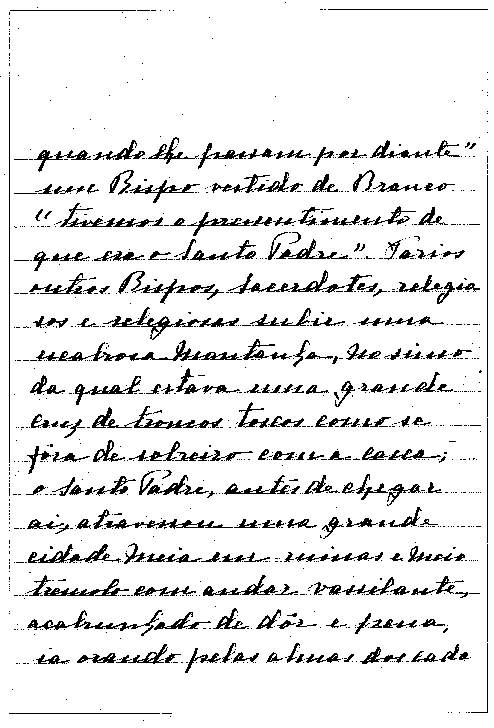 quando lhe passam por diante"
um Bispo vestido de Branco
"tivemos o pressentimento de
que era o Santo Padre". Varios
outros Bispos, Sacerdotes, relegio
sos e relegiosas subir uma
escabrosa montanha, no simo
da qual estava uma grande
cruz de troncos toscos como se
fôra de sobreiro com a casca;
o Santo Padre, antes de chegar
aí, atravessou uma grande
cidade meia em ruinas e meio
tremolo com andar vassilante,
acabrunhado de dôr e pena,
ia orando pelas almas dos cada